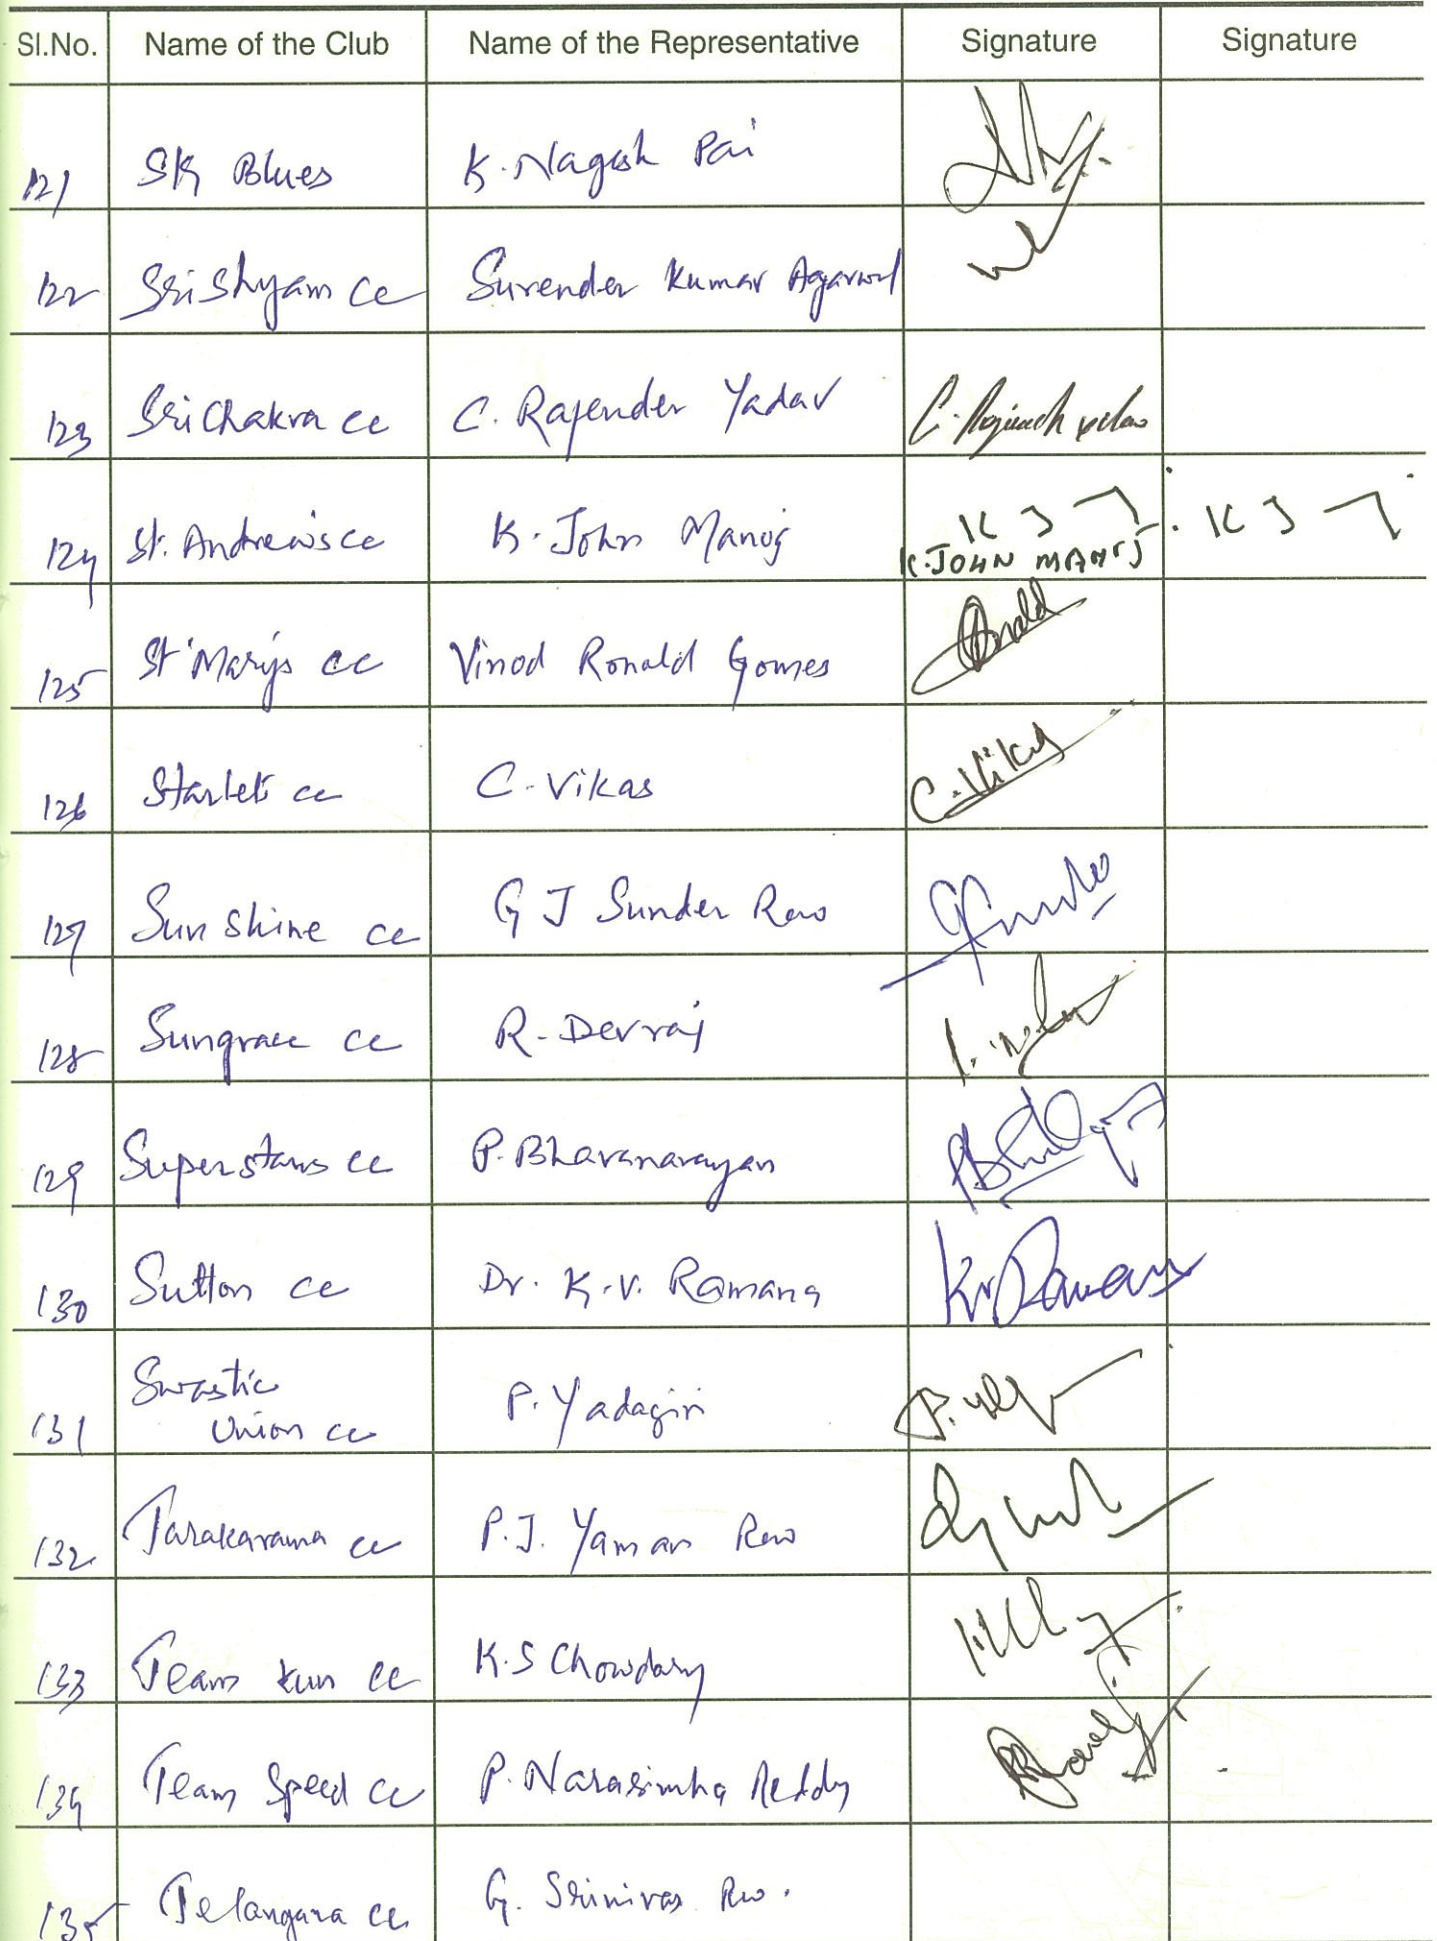 Sl.No. Name of the Club Name of the Representative Signature Signature
121 SK Blues K. Nagesh Pai
122 Sri Shyam CC Surender Kumar Agarwal
123 Sri Chakra CC C. Rajender Yadav
124 St. Andrew's CC K. John Manoj K J K J
K. JOHN MANOJ
125 St Mary's CC Vinod Ronald Gomes
126 Starlets CC C. Vikas C. Vikas
127 Sunshine CC G J Sunder Rao
128 Sungrace CC R. Devraj
129 Superstars CC P. Bhavanarayan
130 Sutton CC Dr. K.V. Ramana KV Ramana
131 Swastic
Union CC P. Yadagiri
132 Tarakarama CC P.J. Yaman Rao
133 Team Kun CC K.S Chowdary
134 Team Speed CC P. Narasimha Reddy
135 Telangana CC G. Srinivas Rao.